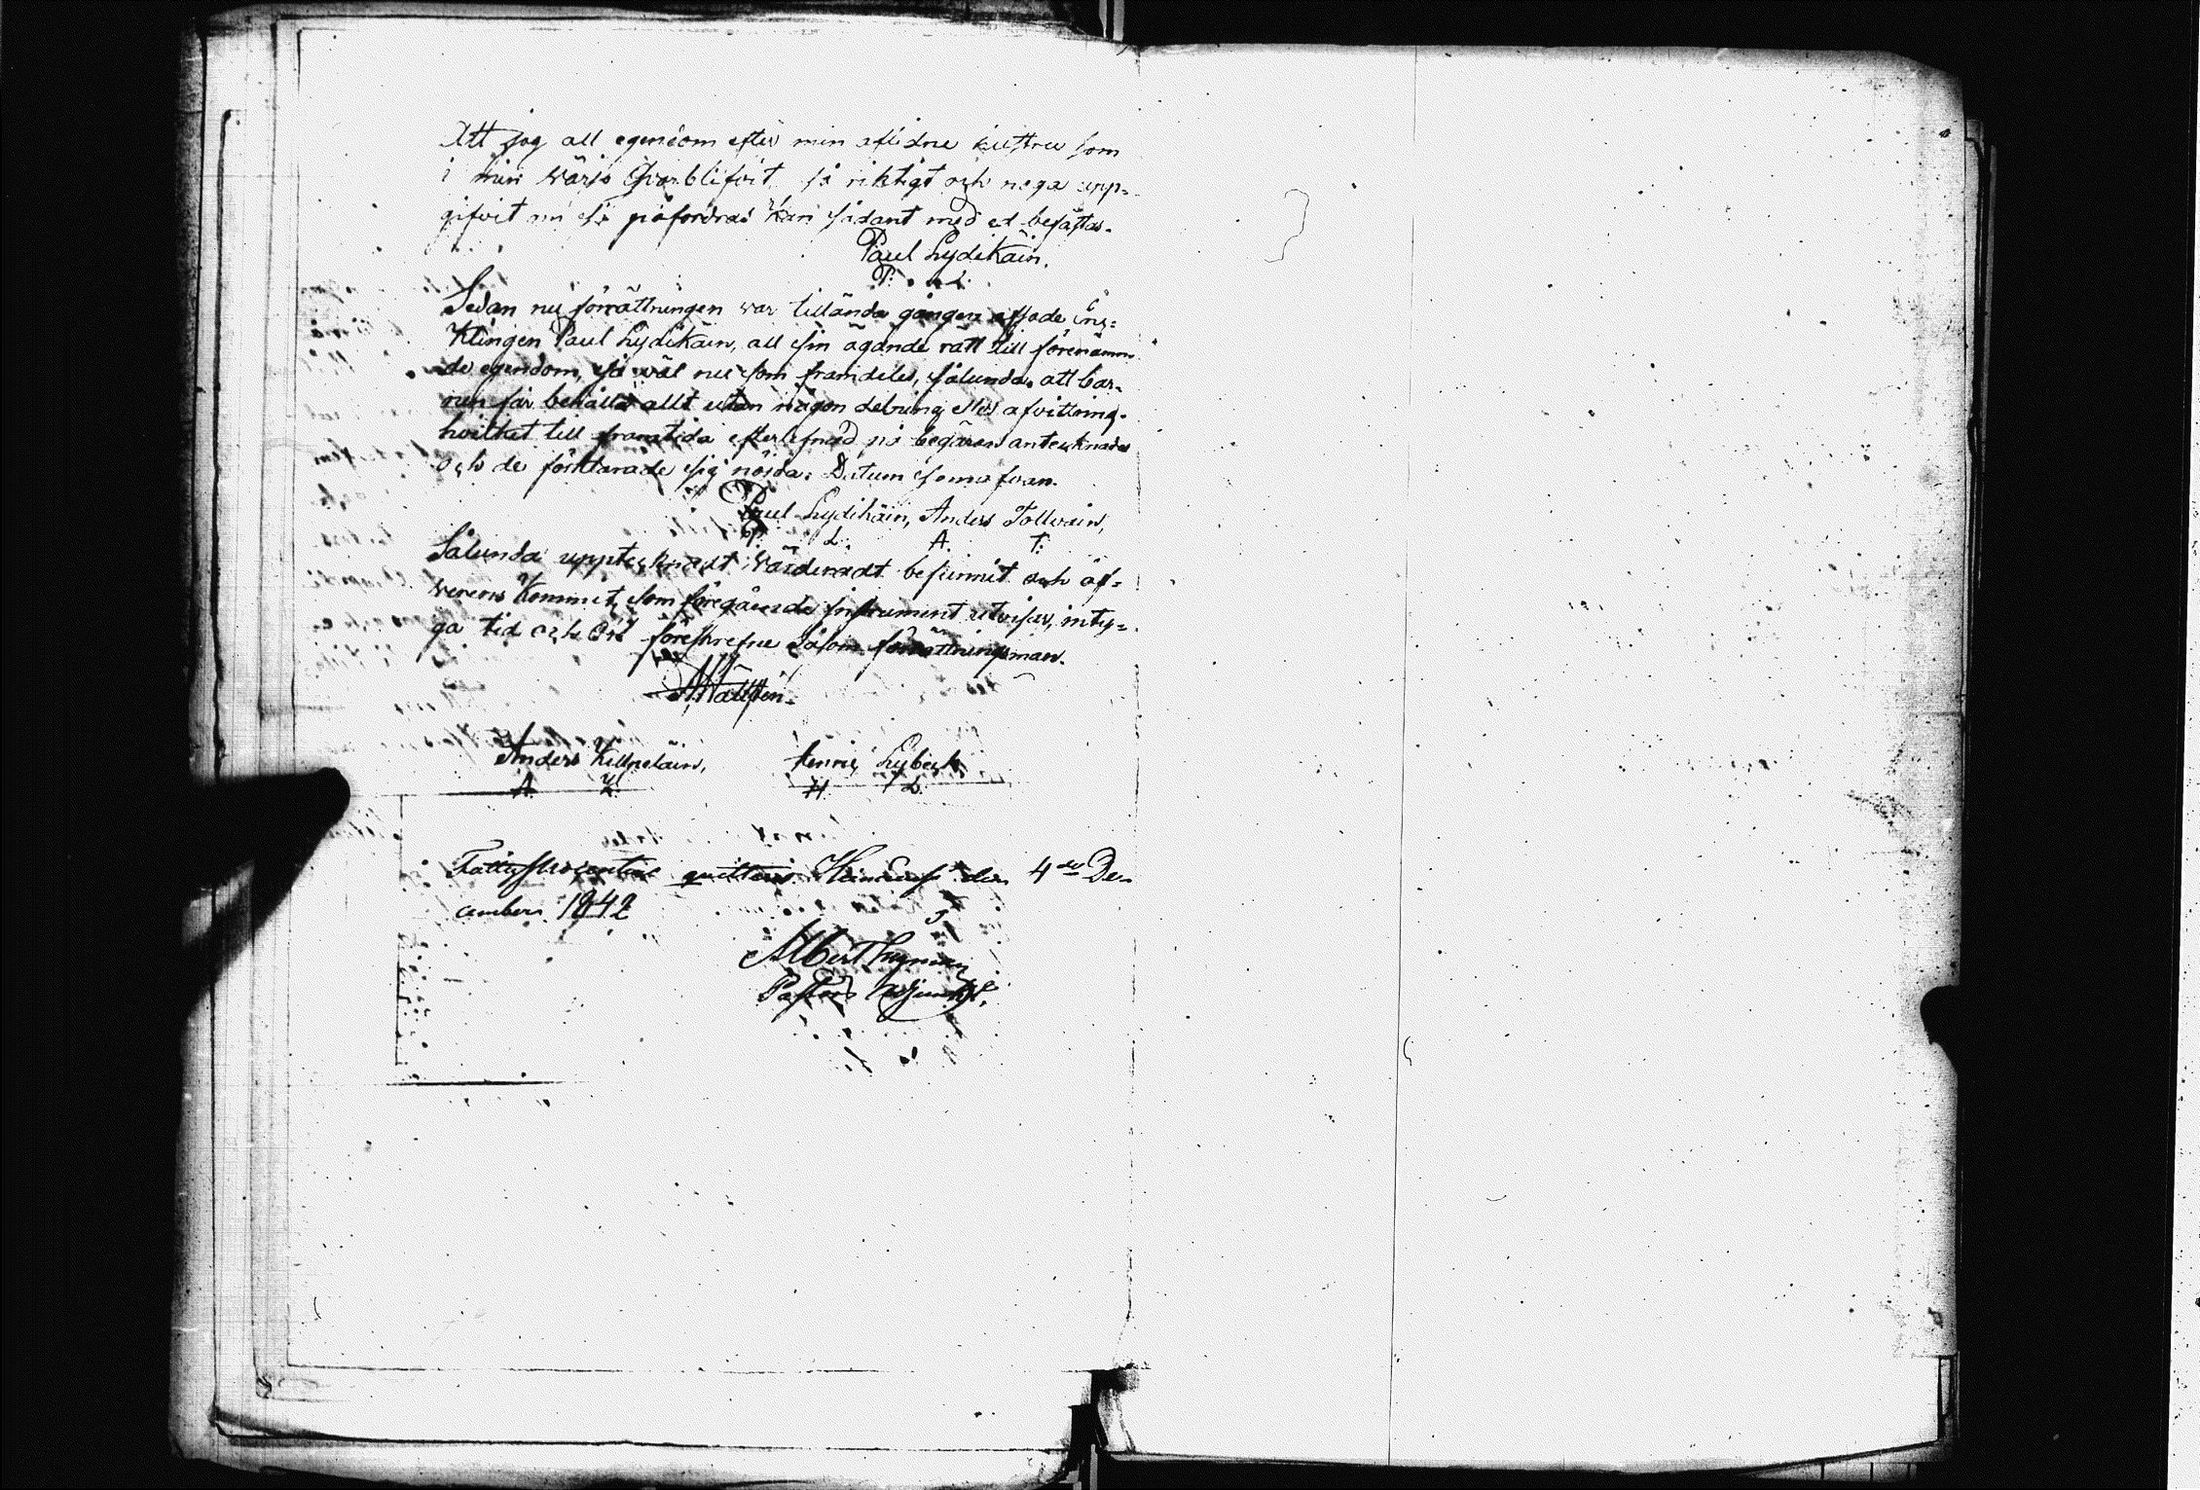 Att jag all egendom efter min aflidne hustru som
i min wärjo qvarblifvit, så riktigt och noga upp=
gifvit att så påfordras kan sådant med ed befästas.
Paul Lydikäin.
P. L.
Sedan nu förrättningen war tilländagången afsade
Paul Lydikäin, all sin ägande rätt till förenämn
de egendom, så wäl nu som framdeles, sålunda, att bar=
nen får behålla allt utan någon delning eller afvittring,
hvilket till framtida efterlefnad på begäran antecknades
och de förklarade sig nöjda. Datum som ofvan.
Paul Lydikäin, Anders Tollvain,
P. L. A. T.
Sålunda upptecknadt wärderadt befunnit och öf=
werens kommit, som föregående Instrument utvisar, inty=
ga tid och Ort föreskrefne såsom förrättningsmän.
Anders
Henric Lybeck
A. K. H. L.
Fattigprocenten qwitteras den 4de De=
cember 1842
Albert
Pastors Adjunkt.